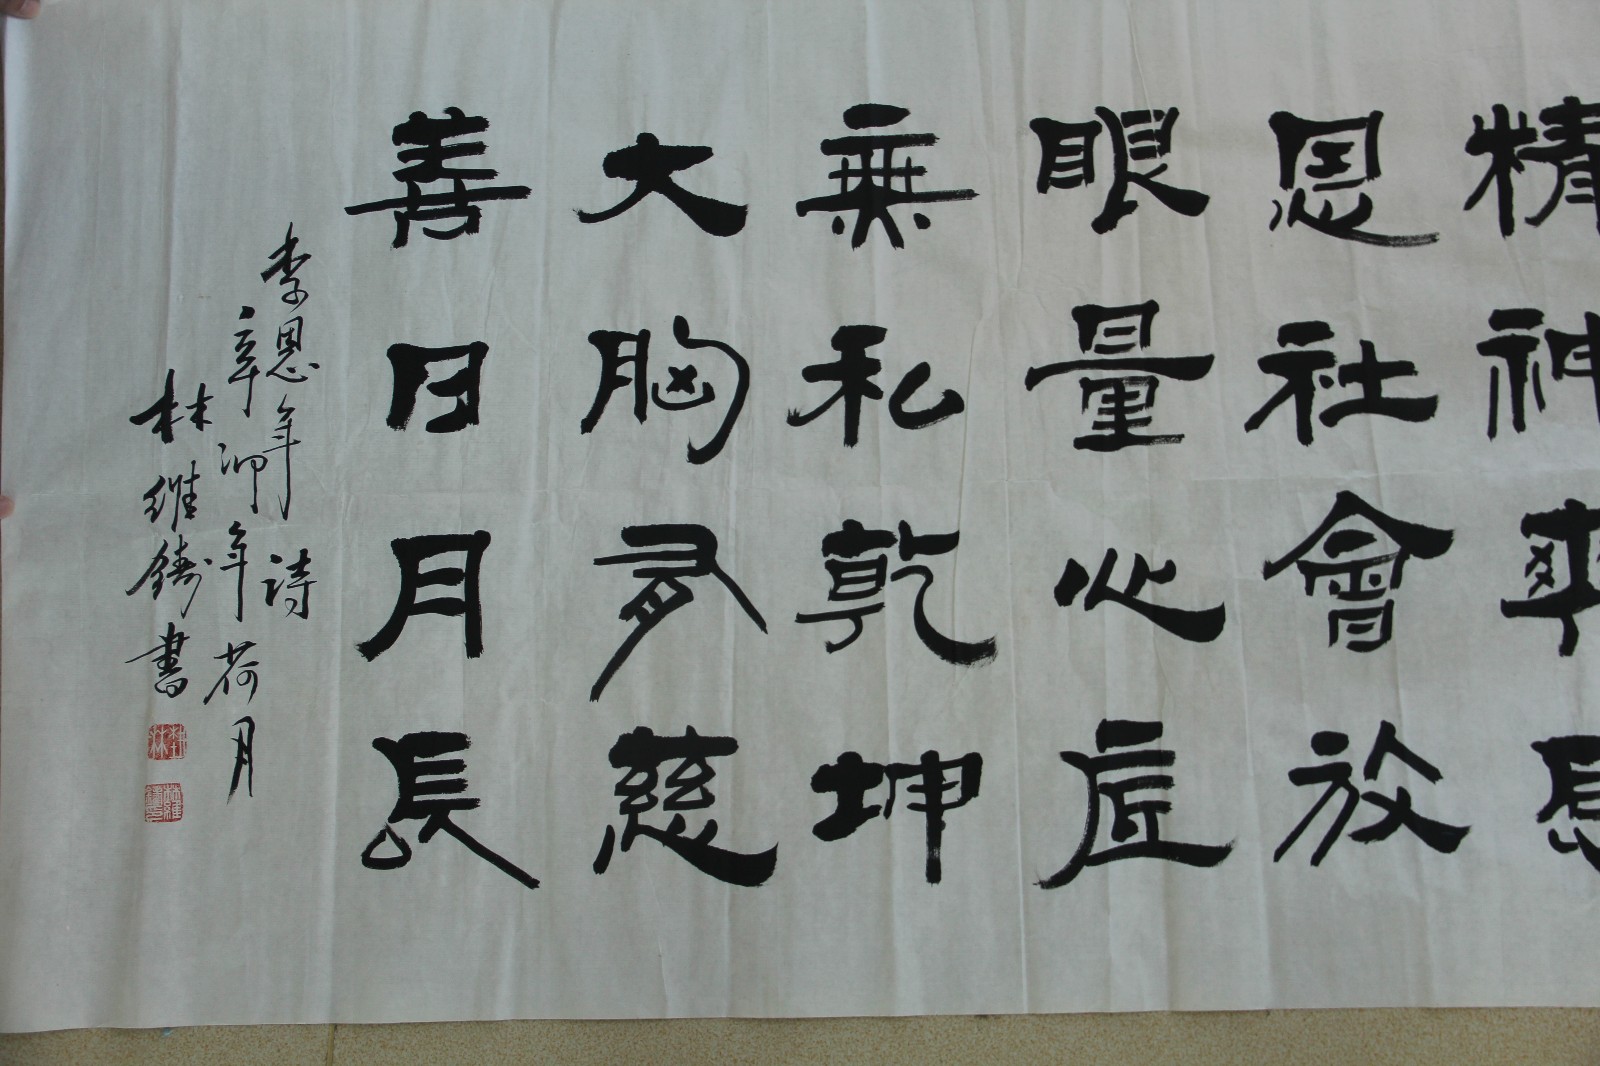 精神爽感
恩社會放
眼量心底
無私乾坤
大胸有慈
善日月長
李恩年詩
辛卯年荷月
林維鑄書